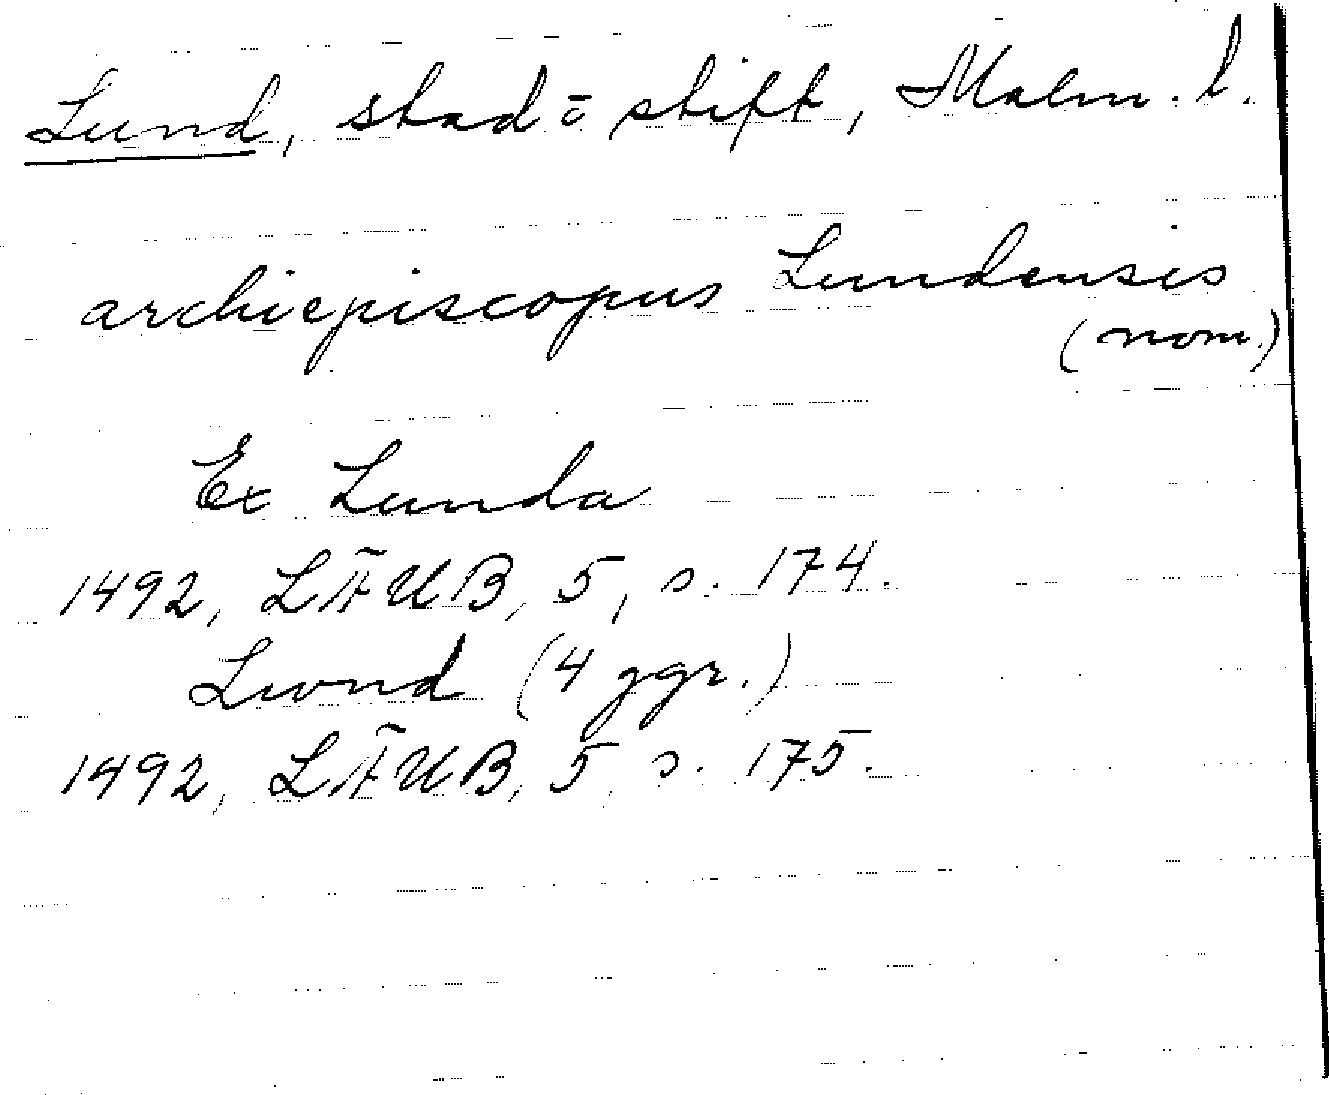 Lund, stad o stift, Malm. l.
archiepiscopus Lundensis
(nom.)
Ex Lunda
1492, LÄUB, 5, s. 174.
Lwnd (4 ggr.)
1492, LÄUB, 5, s. 175.